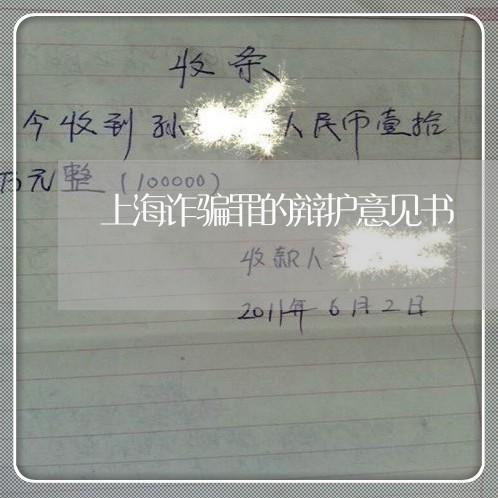 收条
今收到孙 人民币壹拾
万元整(100000)
上海诈骗罪的辩护意见书
收款人
2011年6月2日